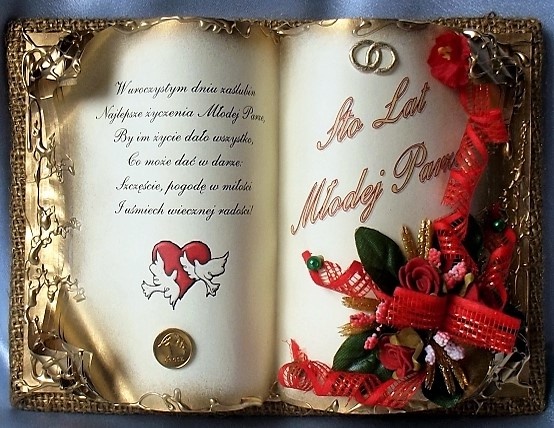 W uroczystym dniu zaślubin
Najlepsze życzenia Młodej Parze,
By im życie dało wszystko,
Co może dać w darze:
Szczęście, pogodę w miłości
I uśmiech wiecznej radości!
Sto Lat
Młodej Parze